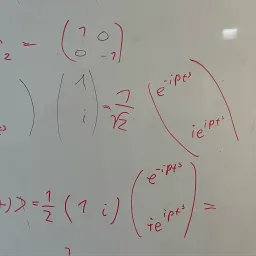 2 = ( 1 0 0 -1 )
) ( 1 i ) = 1/√2 ( e^{-ipt³} i e^{ipt³} )
) > = 1/2 ( 1 i ) ( e^{-ipt³} i e^{ipt³} ) =